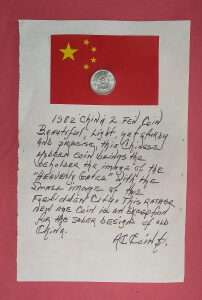 1982 China 2 Fen Coin
Beautiful, Light, yet sturdy
and precise this Chinese
modern coin brings the
beholder the image of the
"Heavenly Gates" with the
small image of the
Forbidden City. This rather
new age coin is an exception
for the sober designs of old
China.